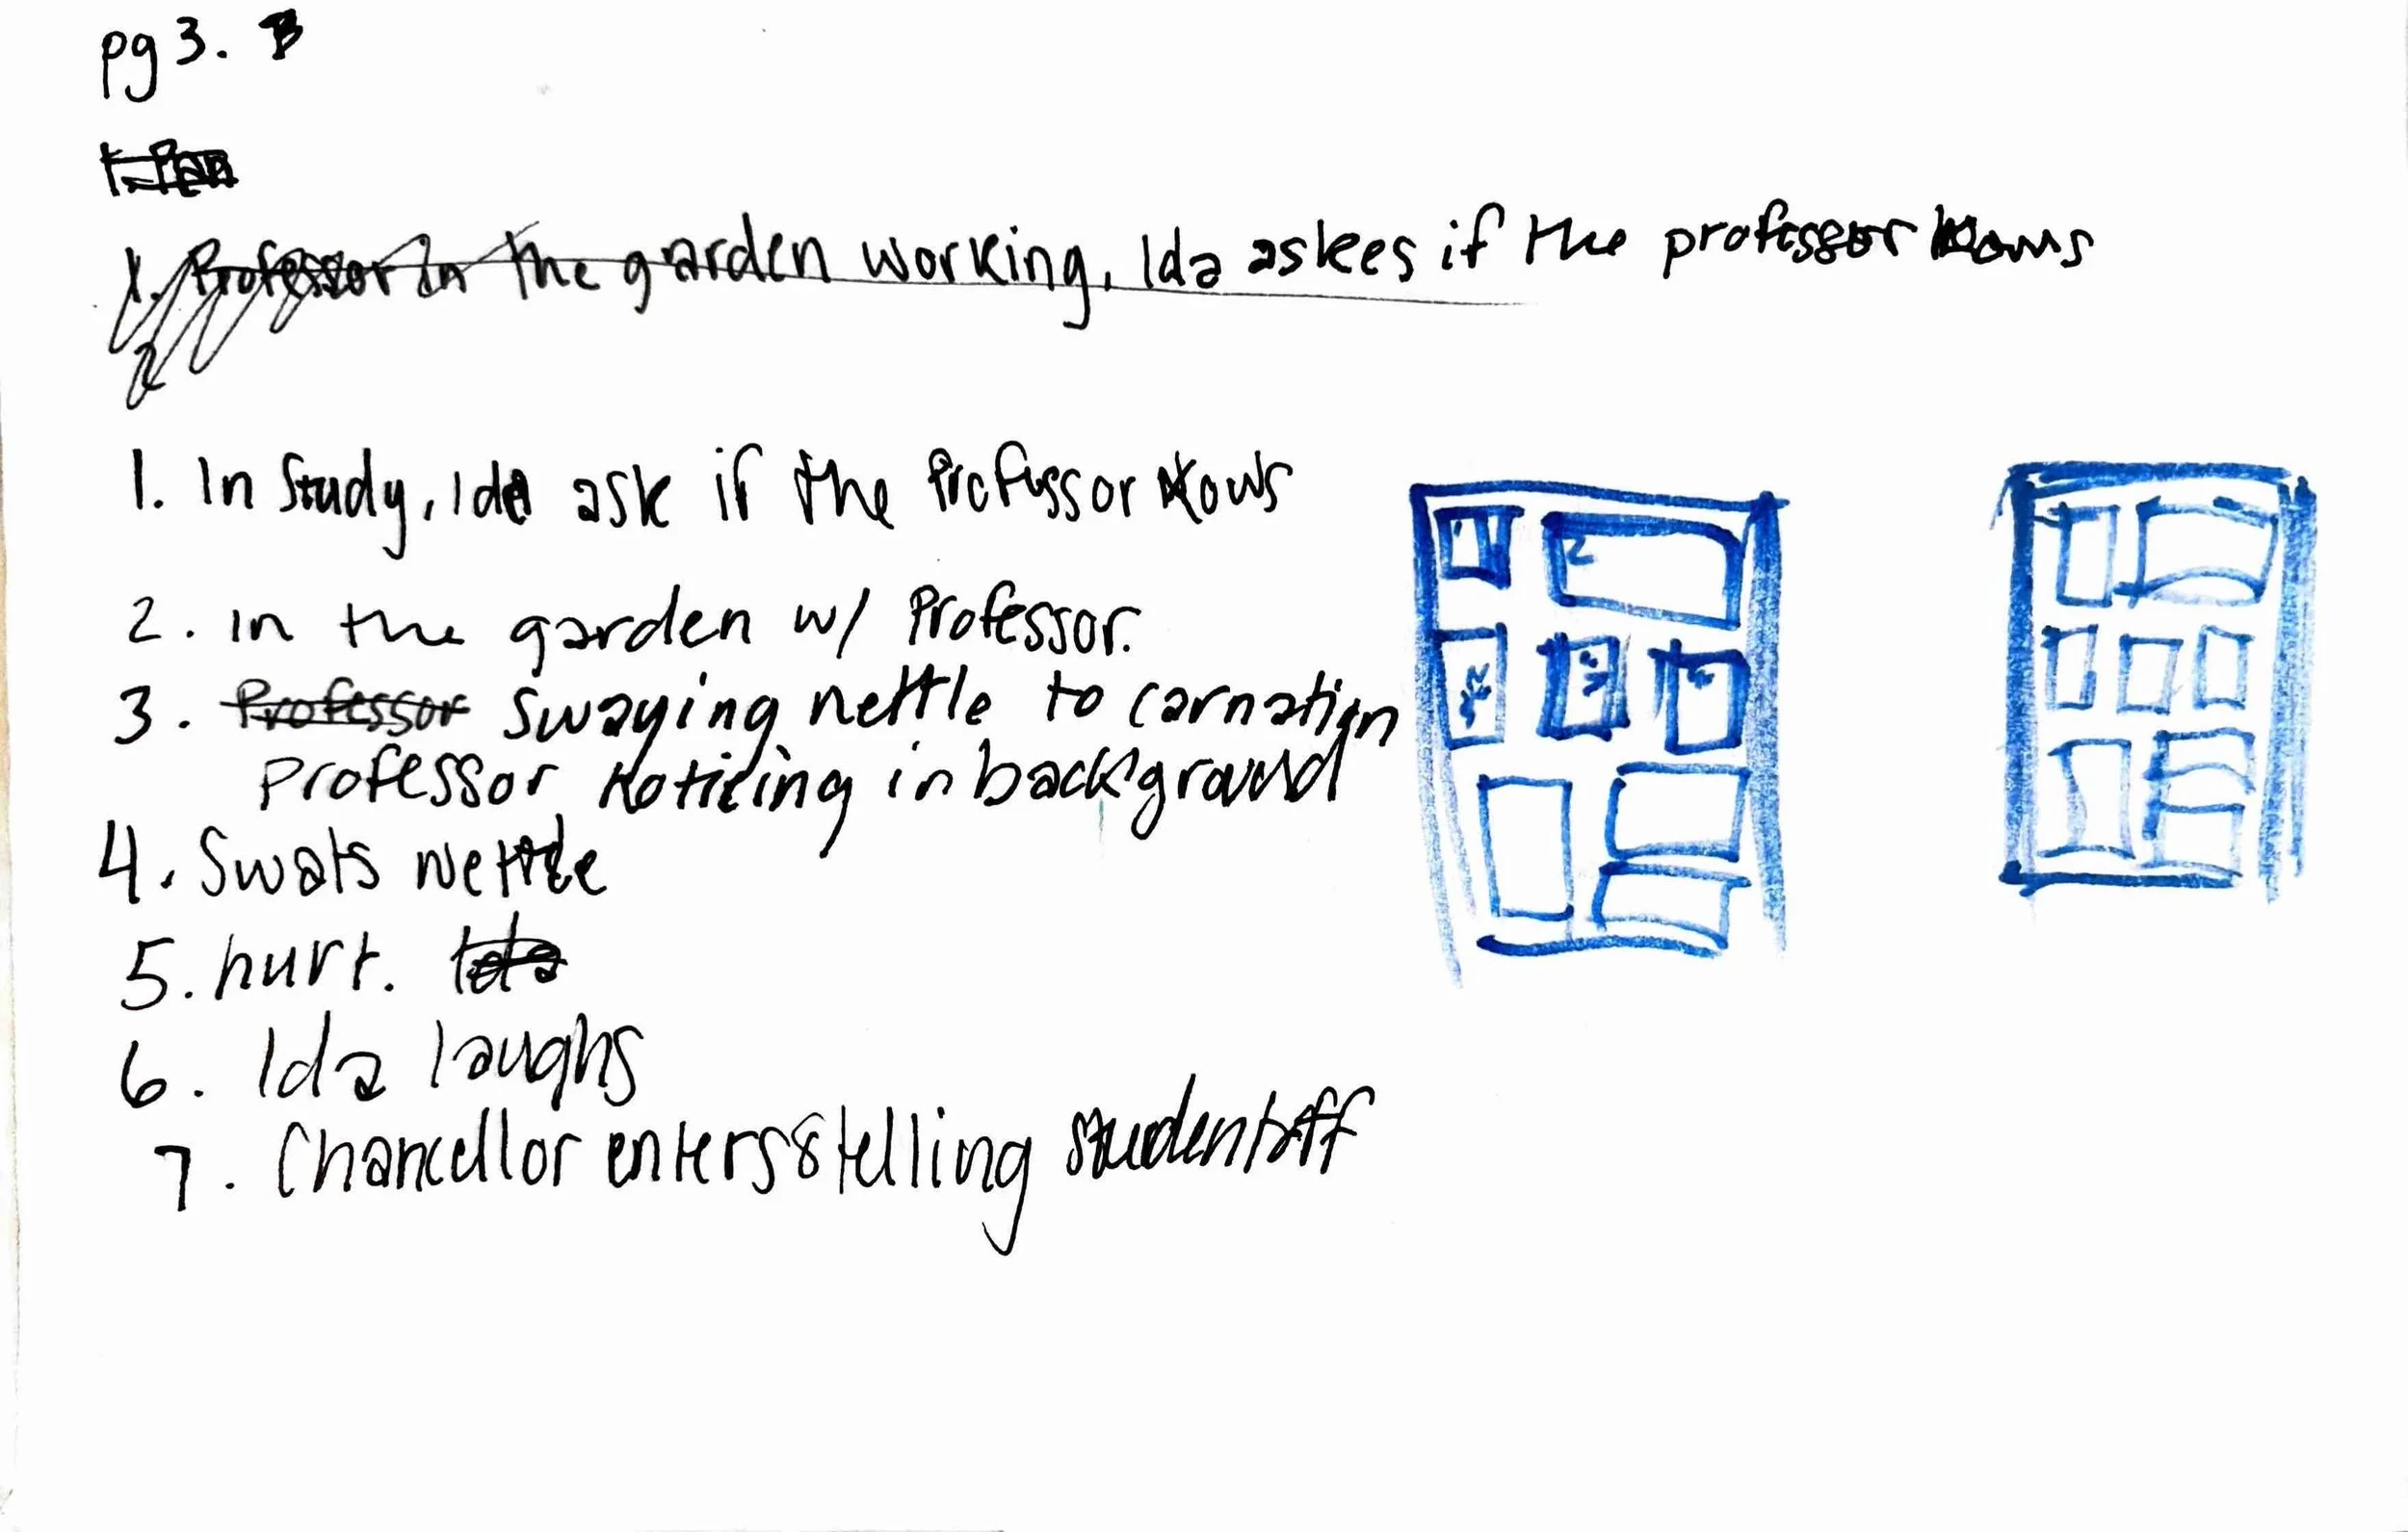 pg 3.
1. Professor in the garden working. Ida askees if the professor knows
2
1. In Study, Ida ask if the Professor knows
2. in the garden w/ Professor.
3. Professor Swaying nettle to carnation
Professor noticing in background
4. Swats nettle
5. hurt. Ida
6. Ida laughs
7. Chancellor enters & telling student off
1
2